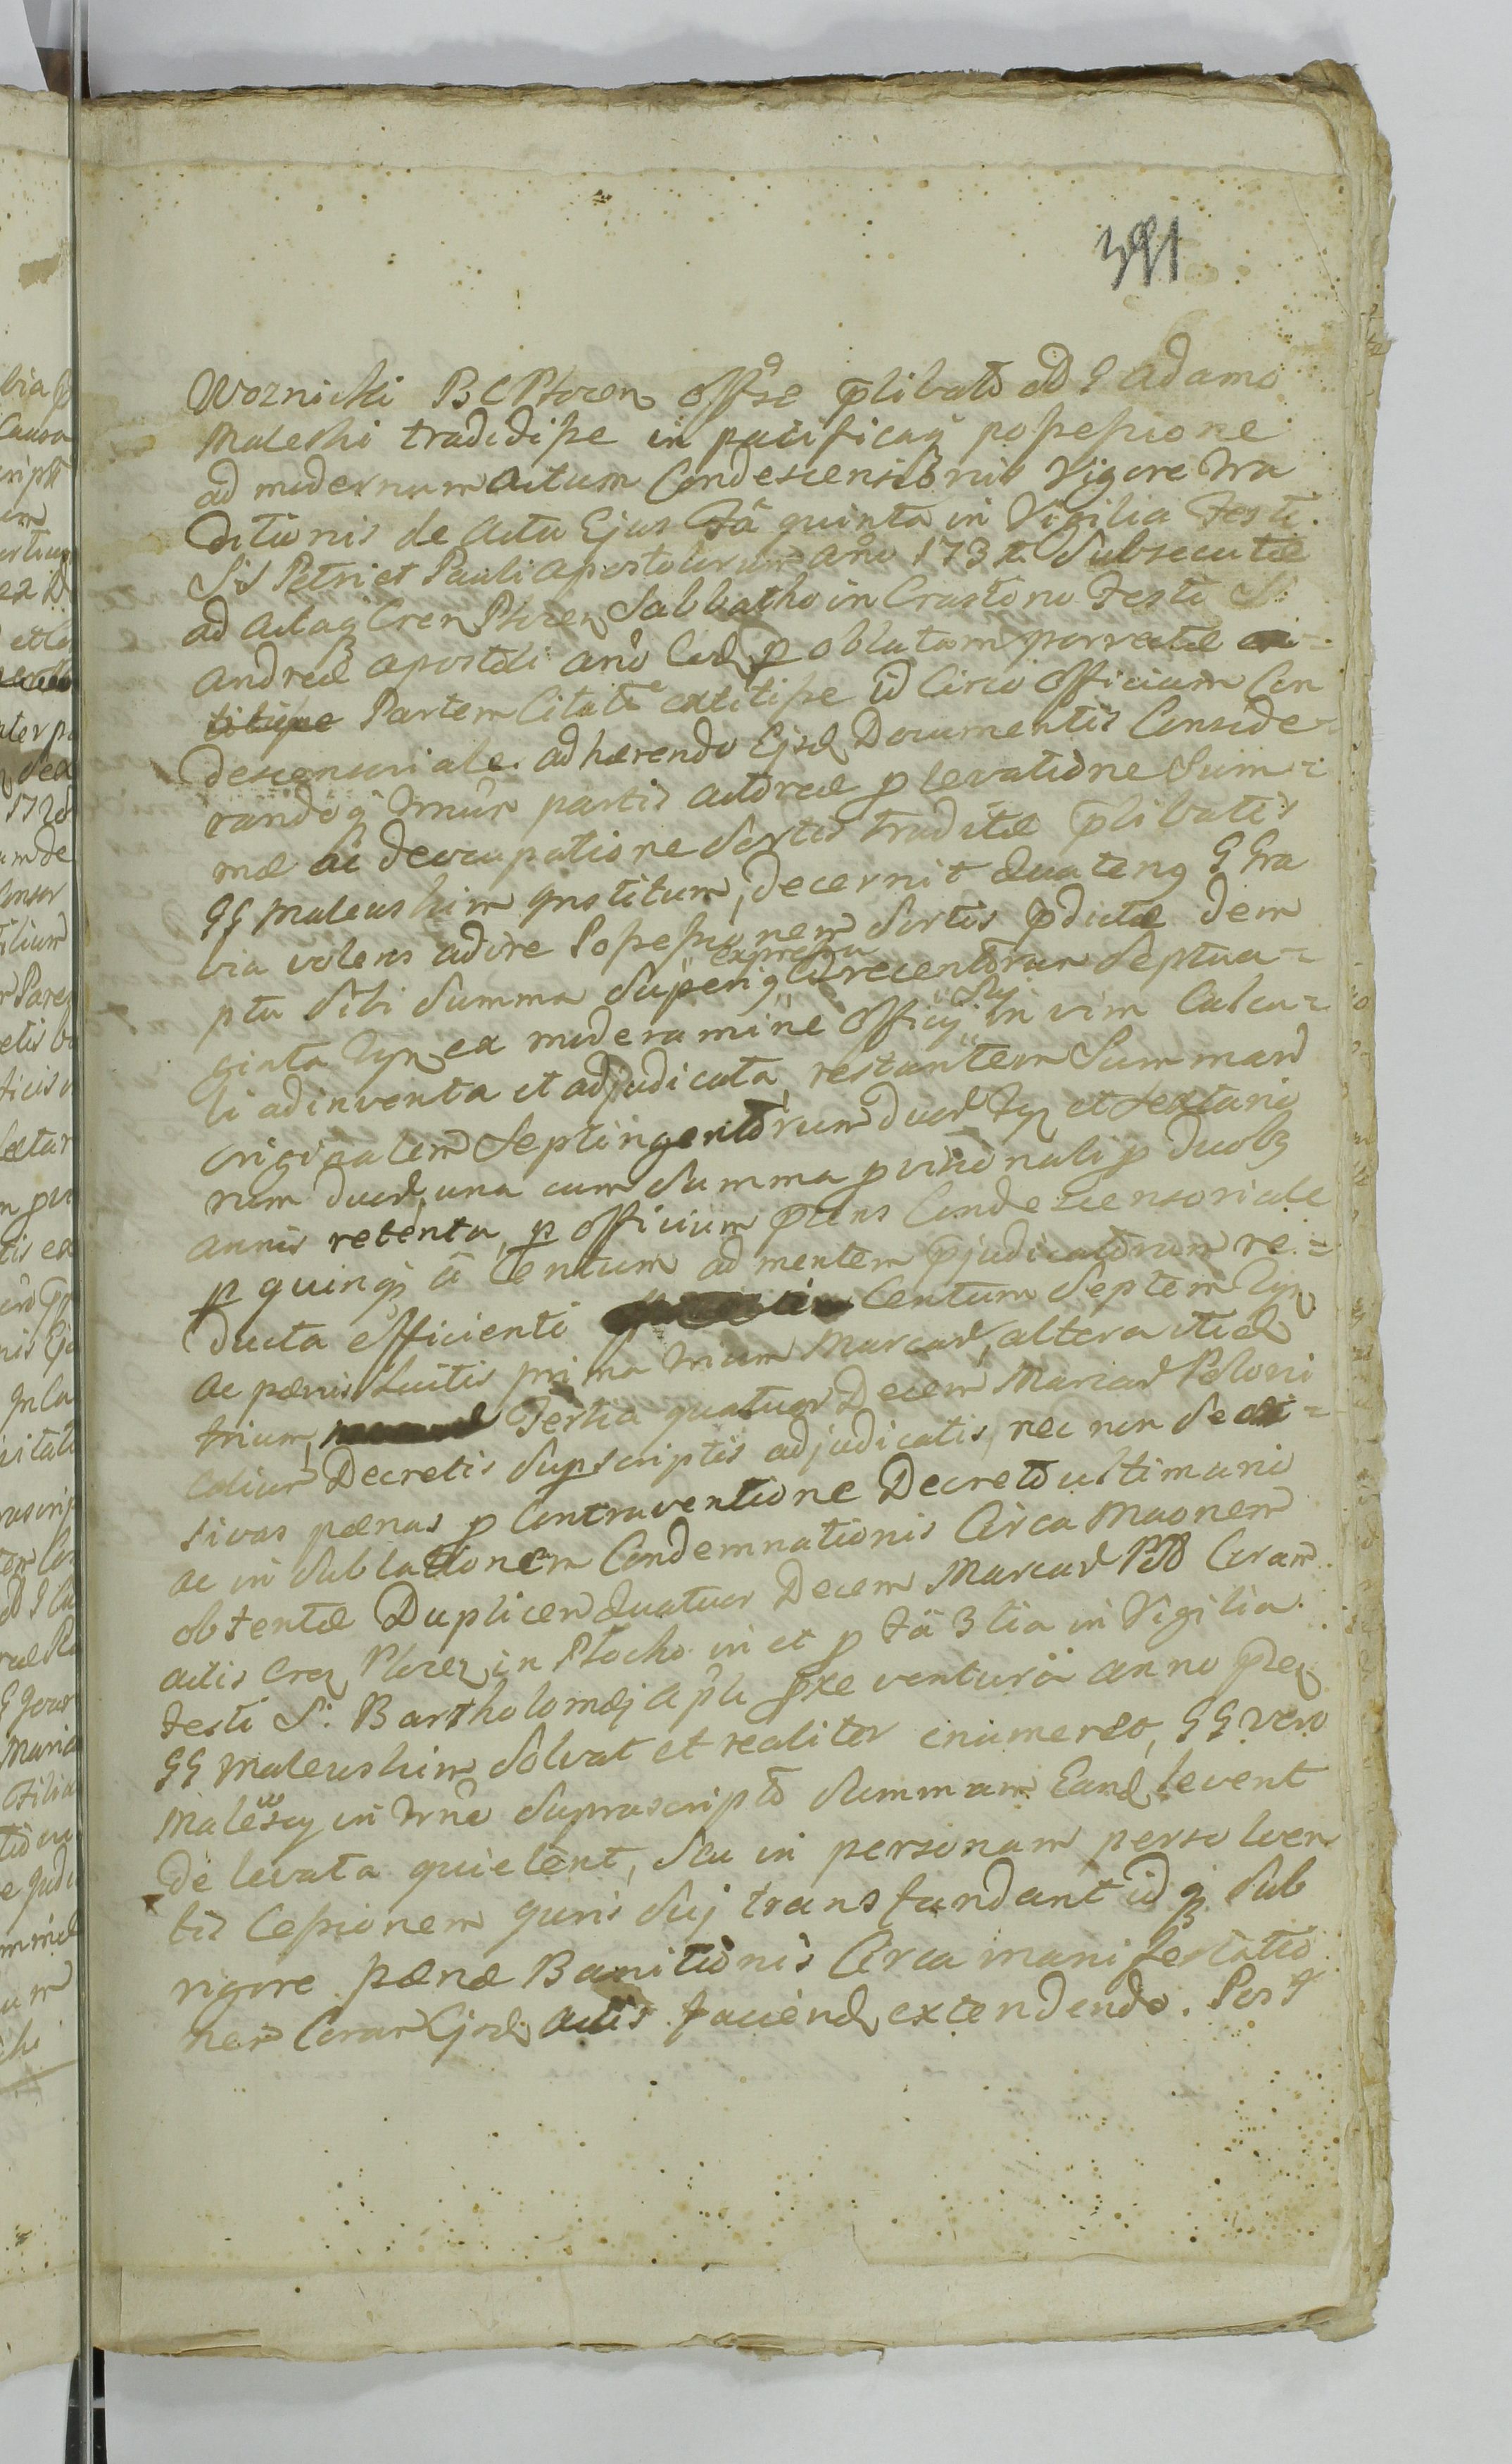 391
Woznicki B C Ploren offse plibato ad G Adamo
Maleski tradidisse in pacificaq possessione
ad modernum actum Condescensionis Vigore tra
ditionis de Actu Ejus Fâ quinta in Vigilia Festi
SS Petri et Pauli Apostolorum Año 173 Subsecutæ
ad Actaq Cren Plocen Sabbatho in Crastono Festi S:
Andreæ Apostoli año Eod p oblatam porrectæ ex=
titisse Partem Citatã extitisse id Circo Officium Con
descensoriale adhærendo Ejsd Documentis Conside=
randoq trnûr partis actoreæ p levatione Sum=
mæ ac deoccupatione Sortis traditæ plibatis
GG Maleuskim institum, decernit Quateng G Gra
via volens adire Possessionem Sortis pdictæ dem
pta Sibi Summa Superig expressa Trecentorum Septua=
ginta Tyn ex moderamine Officij Suj in vim Calcu=
li adinventa et adjudicata, restantem Summam
originalem Septingentorum duor Tyn et Sextario
rum duor, una cum Summa pvisionali p duobz
annis retenta, p officium præns Condescensoriale
p quinq â Centum ad mentem pjudicatorum re=
ducta efficienti Centum Septem Tyn
ac pænis luitis prima trium Marcar, altera itid
trium, Tertia quatuor Decem Marcar Poloni
calium Decretis Supscriptis adjudicatis, nec non deci=
sivas pænas p Contraventione Decreto ultimario
ac in Sublationem Condemnationis Circa Maonem
obtentæ Duplicem Quatuor Decem Marcar Coram
Actis Cren Plocen in Plocko in et p Fâ 3tia in Vigilia
Festi S: Bartholomæj Apli pxe ventura anno præ
GG Maleuskim Solvat et realiter enumeret, GG vero
Malewscy in trno Suprascripto Summam Eand levent
de levata quietent, Seu in personam persolven
tis Cessionem juris Suj transfundant idq Sub
rigore pænæ Banitionis Circa manifestatio
nem Coram Ejsd Actis faciend extendendo. Post